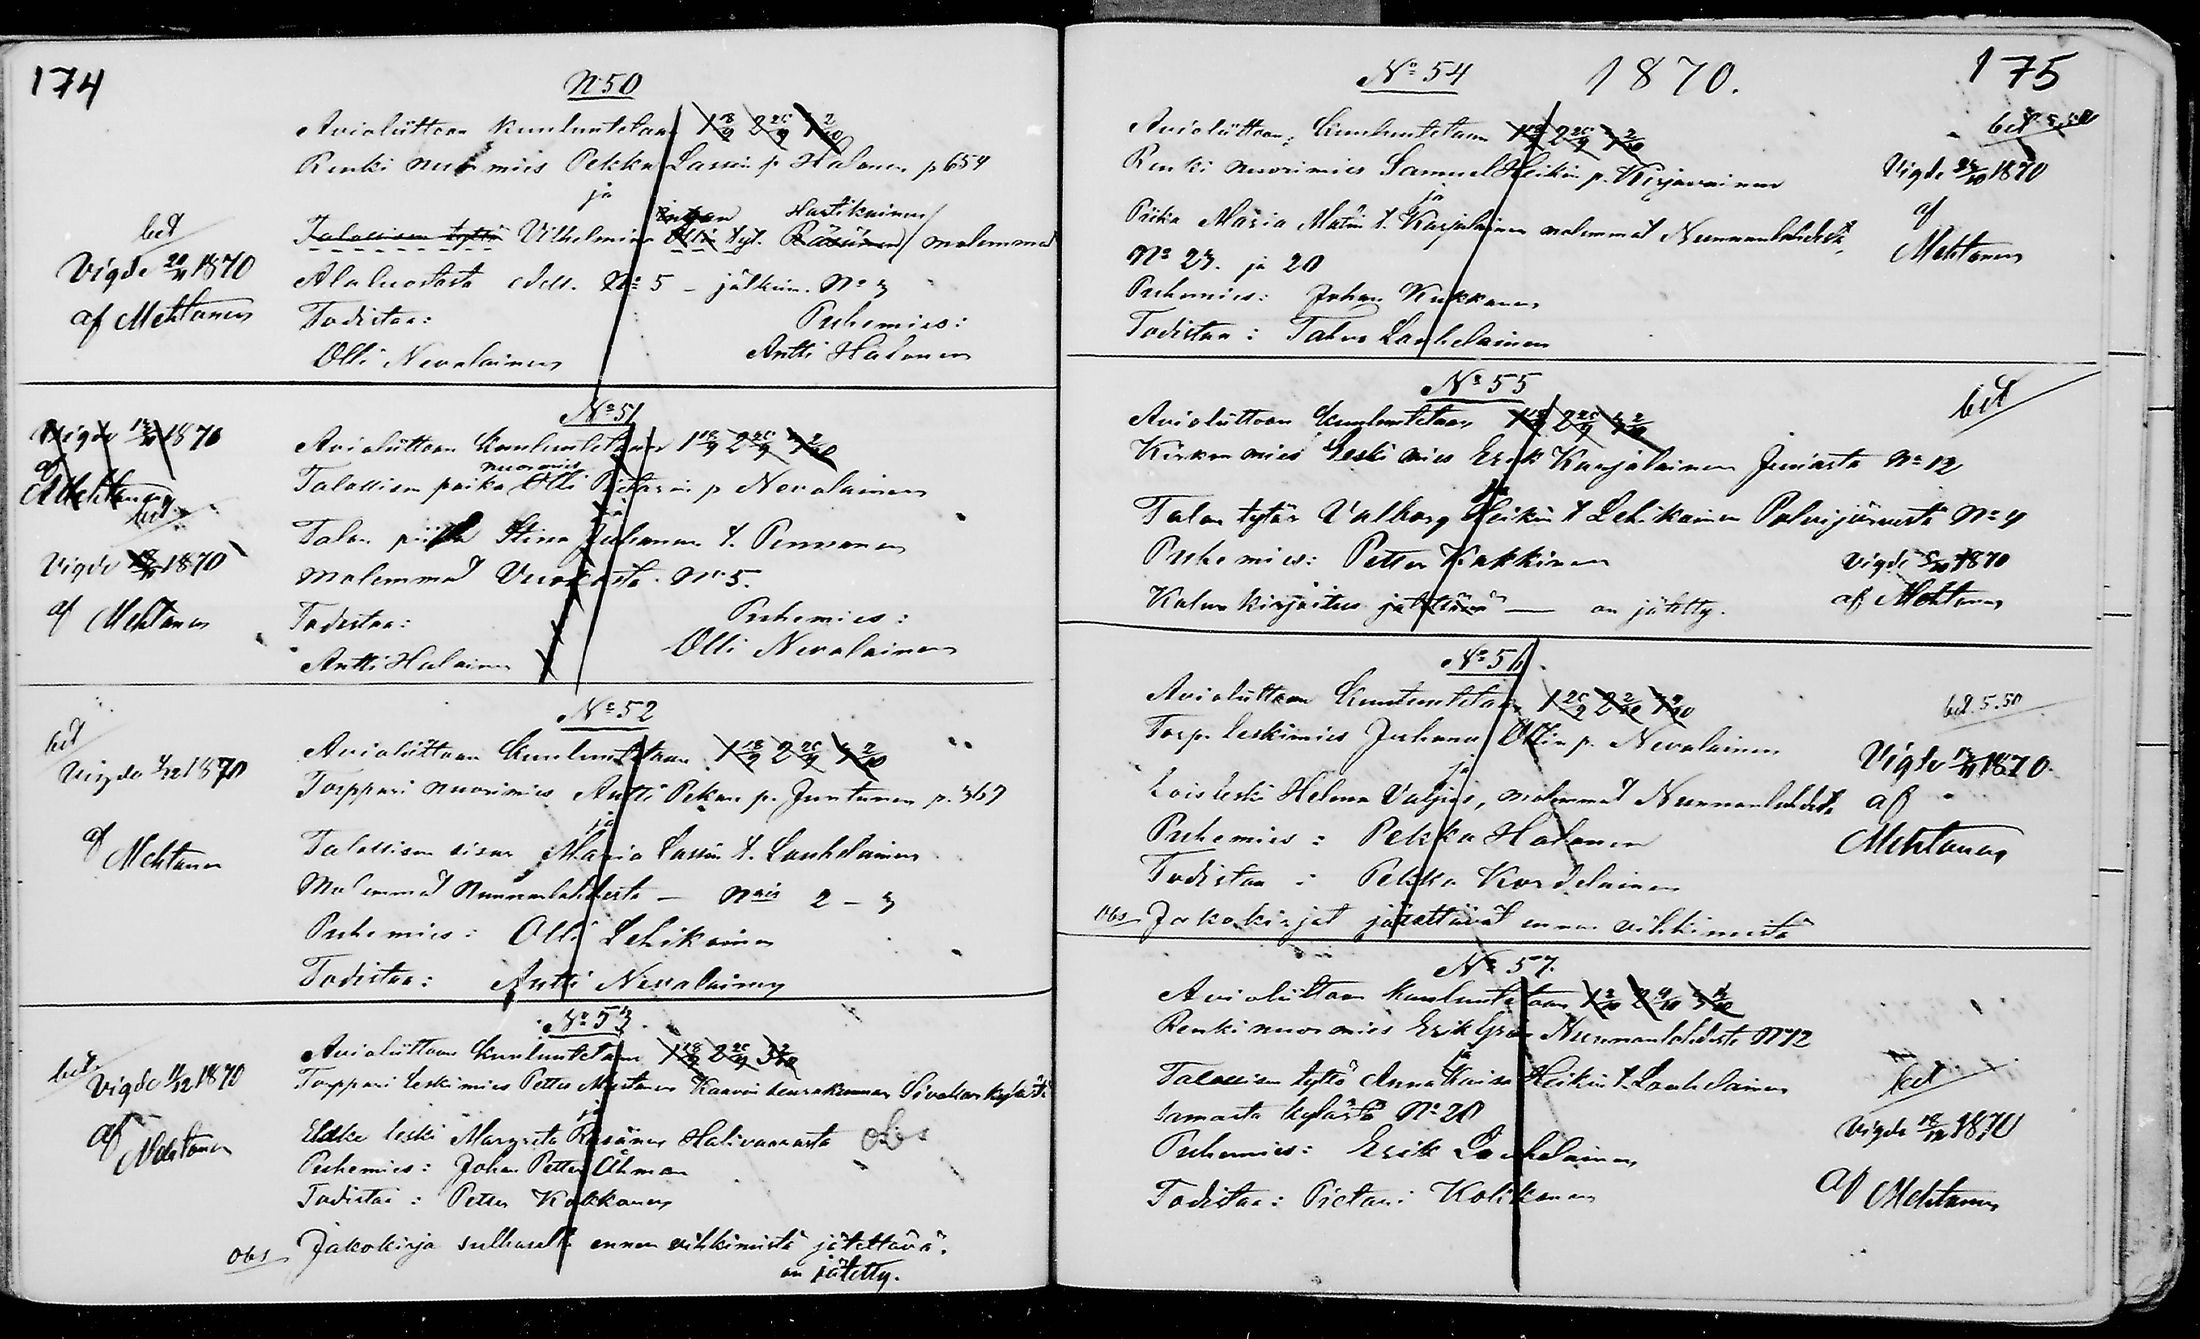 174
No 50
Avioliittoon kuulutetaan 1 18/9 2 25/9 3 2/10
Renki nuorimies Pekka Lassin p. Halonen p 654
ja
Hartikainen
Talollisen tyttö Vilhelmina Ollin tyt. Räsänen / molemmat
Alaluostasta edell. No 5 - jälkim. No 3
Todistaa: Puhemies:
Olli Nevalainen Antti Halonen
bet
Vigde 20/11 1870
af Mehtonen
No 51
Avioliittoon kuulutetaan 1 18/9 2 25/9 3 2/10
nuorimies
Talollisen poika Olli Pietarin p Nevalainen
ja
Talon piika Stina Juhanan t. Pennanen
molemmat No 5.
Todistaa: Puhemies:
Antti Halainen Olli Nevalainen
Vigde 1870
af
Mehtonen
bet
Vigde 1870
af Mehtonen
No 52
Avioliittoon kuulutetaan 1 18/9 2 25/9 3 2/10
Torppari nuorimies Antti Pekan p. Juntunen p. 367
ja
Talollisen sisar Maria Lassin t. Lauhelainen
Molemmat Nunnanlahdesta - No 2 - 3
Puhemies: Olli Lehikoinen
Todistaa: Antti Nevalainen
bet
Vigde 1870
af Mehtonen
No 53
Avioliittoon kuulutetaan 1 18/9 2 25/9 3 2/10
Torppari leskimies Petter Kaavin seurakunnan Sivakan kylästä
ja
leski Margreta Räsänen Halivaarasta obs
Puhemies: Johan Petter Åhman
Todistaa: Petter Kokkonen
obs Jakokirja sulhaselta ennen vihkimistä jätettävä.
on jätetty.
bet
Vigde 11/12 1870
af Mehtonen
1870.
175
No 54
Avioliittoon kuulutetaan 1 18/9 2 25/9 3 2/10
Renki nuorimies Samuel Heikin p. Kirjavainen
ja
Piika Maria Matin t. Karjalainen molemmat Nunnanlahdesta
No 23. ja 20
Puhemies: Johan Kukkonen
Todistaa: Lauhelainen
bet 5.50
Vigde 1870
af
Mehtonen
No 55
Avioliittoon kuulutetaan 1 18/9 2 25/9 3 2/10
leski mies Erik Karjalainen Juuasta No 12
ja
Talon tytär Valborg Heikin t Lehikainen Polvijärvestä No 4
Puhemies: Petter Kakkinen
Kalun kirjoitus jätettävä — on jätetty.
bet
Vigde 1870
af Mehtonen
No 56
Avioliittoon kuulutetaan 1 25/9 2 2/10 3 9/10
Torp. leskimies Juhana Ollin p. Nevalainen
ja
Loisleski Helena Valjus, molemmat Nunnanlahdesta
Puhemies: Pekka Halonen
Todistaa: Pekka Kordelainen
obs Jakokirjat jätettävät ennen vihkimistä
bet. 5.50
Vigde 1870
af
Mehtonen
No 57.
Avioliittoon kuulutetaan 1 2/10 2 9/10 3 16/10
Renki nuorimies Erik Grön Nunnanlahdesta No 12
ja
Talollisen tyttö Anna Kaisa Heikin t. Lauhelainen
samasta kylästä No 20
Puhemies: Erik Lauhelainen
Todistaa: Pietari Kolikonen
bet
Vigde 18/12 1870
af Mehtonen